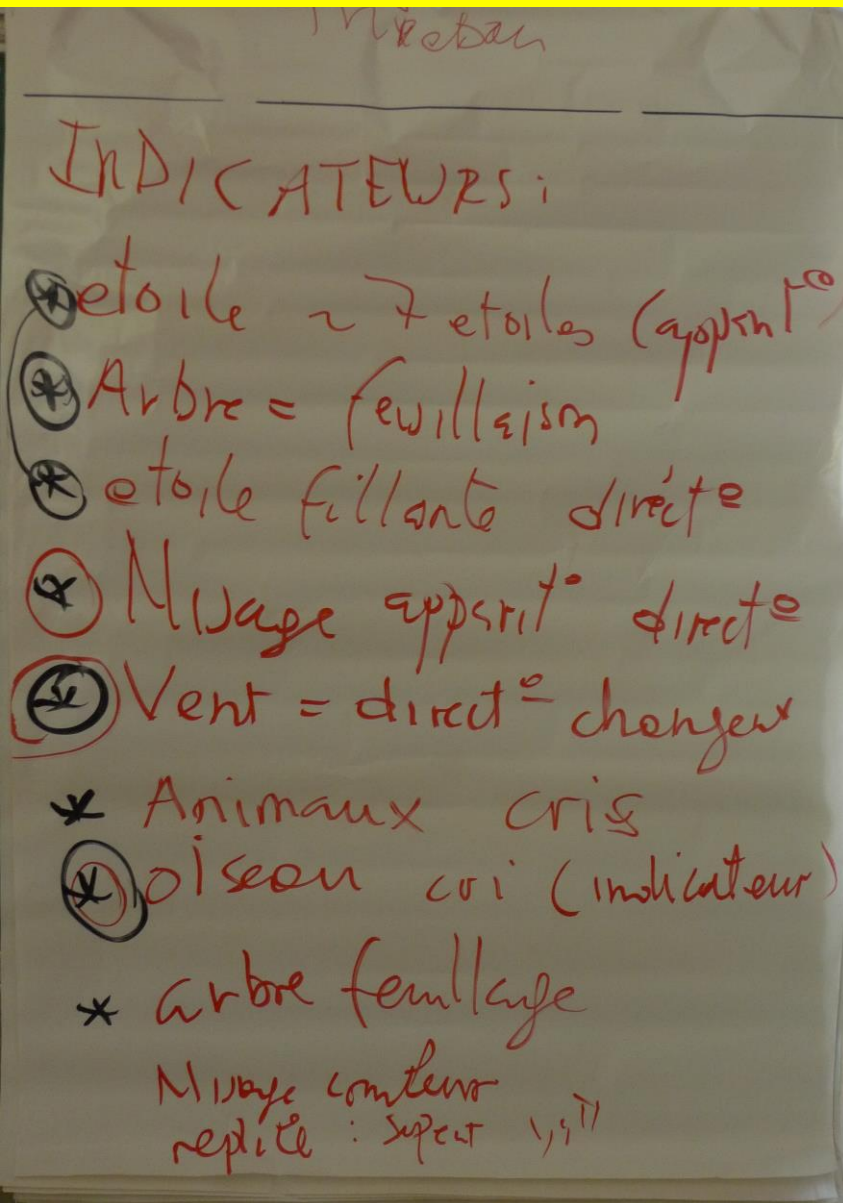 INDICATEURS:
* etoile ~ 7 etoiles
* Arbre = feuillaison
* etoile fillante direct°
* Nuage apparit° direct°
* Vent = direct° changeux
* Animaux cris
* oiseau cri (indicateur)
* arbre feuillage
Nuage couleur
reptile :